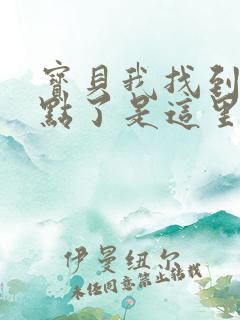 寶貝我找到
點了是這里
伊曼紐尔
未经同意禁止转载